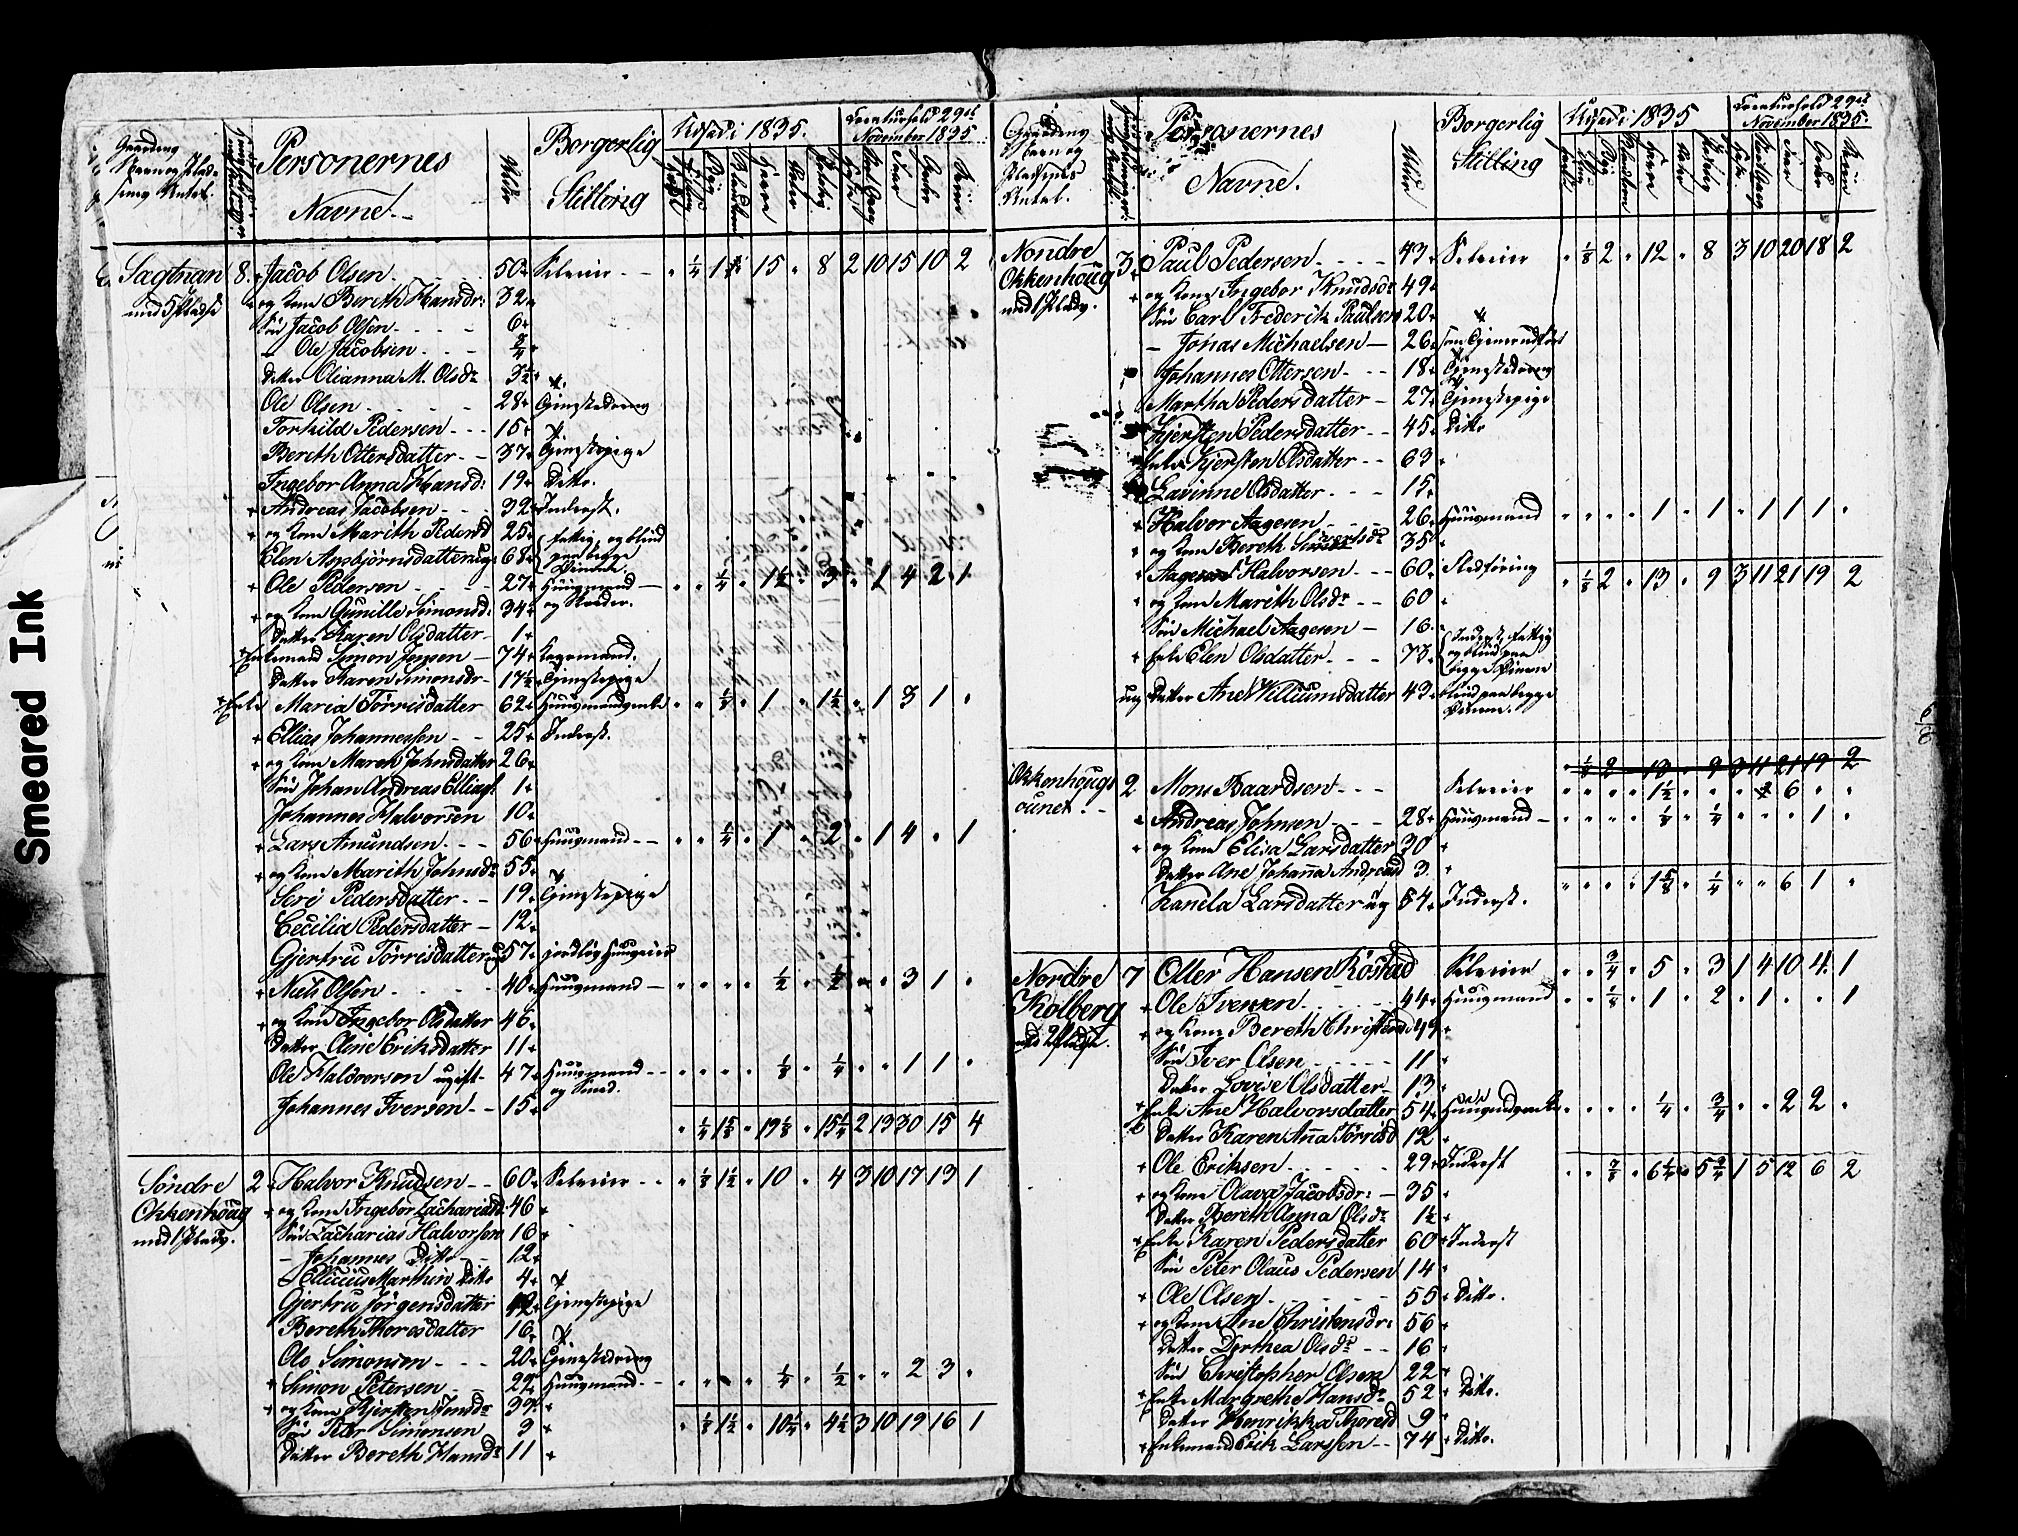 Smeared Ink
Gaardens
Navn og Plad-
sens Antal.
Personernes
Navne.
Alder
Borgerlig
Stilling
Udsæd i 1835.
Creaturhold 29de
November 1835
Sagtnan 8. Jacob Olsen 50 Selveier " ¼ 1 15 " 8 2 10 15 10 2
med 5 Pladse og Kone Bereth Hansdr: 32
Søn Jacob Olsen 6
- Ole Jacobsen ¾
Datter Olianna M. Olsdr 3½
Ole Olsen 28 Tjenestedreng
Torkild Pedersen 15
Bereth Ottersdatter 37 Tjenestepige
Ingebor Anna Hansd: 19 Ditto.
Andreas Jacobsen 32 Inderst.
og Kone Marith Pedersd 25 fattig og blind
Elen Aspbjørnsdatter ug: 68 paa begge Øinene
Ole Pedersen 27 Huusmand " " ¼ " 1½ " 3 " 1 4 2 1
og Kone Gunille Simonsd: 34 og Skræder.
Datter Karen Olsdatter 1
Enkemand Simon Jensen 74 Lægsmand.
Datter Karen Simonsdr 17½ Tjenestepige
Enke Maria Tørrisdatter 62 Huusmandsenke " " ⅛ " 1 " 1½ " 1 3 1 "
Ellias Johannessen 25 Inderst.
og Kone Maren Johnsdatter 26
Søn Johan Andreas Elliass. 1
Johannes Halvorsen 10
Lars Amundsen 56 Huusmand " " ¼ " 1 " 2 " 1 4 " 1
og Kone Marith Johnsdr 55
Seri Pedersdatter 19 Tjenestepige
Cecilia Pedersdatter 12
Gjertru Tørrisdatter ug 57 jordløs Huuseier
Niels Olsen 40 Huusmand " " " " ½ " ½ " " 3 1 "
og Kone Ingebor Olsdatter 46
Datter Oline Eriksdatter 11
Ole Haldvorsen ugift 47 Huusmand " " " " ⅛ " ¼ " " 1 1 "
og Smed.
Johannes Iversen 15
" ¼ 1⅝ " 19⅛ " 15¼ 2 13 30 15 4
Søndre 2 Halvor Knudsen 60 Selveier " ⅛ 1½ " 10 " 4 3 10 17 13 1
Okkenhoug og Kone Ingebor Zachariasd. 46
med 1 Plads. Søn Zacharias Halvorsen 16
- Johannes Ditto 12
- Ellicius Marthin Ditto 4
Gjertru Jørgensdatter 42 Tjenestepige
Bereth Thoresdatter 16
Ole Simonsen 20 Tjenestedreng
Simon Petersen 29 Huusmand " " " " ¼ " ½ " " 2 3 "
og Kone Kjersten Jonsdr 39
Søn Peder Simonsen 9
Datter Bereth Hansdr 11
" ⅛ 1½ " 10¼ " 4½ 3 10 19 16 1
Gaardens
Navn og
Pladsenes
Antal.
Personernes
Navne.
Alder
Borgerlig
Stilling
Udsæd i 1835
Creaturhold 29de
November 1835.
Nordre 3 Paul Pedersen 43 Selveier " ⅛ 2 " 12 " 8 3 10 20 18 2
Okkenhoug og Kone Ingebor Knudsdr 49
med 1 Plads. Søn Carl Frederik Paulsen 20
- Jonas Michaelsen 26
Johannes Ottersen 18 Tjenestedreng
Martha Pedersdatter 27 Tjenestepige
Kjersten Pedersdatter 45 Ditto
Enke Kjersten Olsdatter 63
Lavinne Olsdatter 15
Halvor Aagesen 26 Huusmand " " " " 1 " 1 " 1 1 1 "
og Kone Bereth Siversdr 35
Aage Halvorsen 60 Skedføring " ⅛ 2 " 13 " 9 3 11 21 19 2
og Kone Marith Olsdr 60
Søn Michael Aagesen 16
Enke Elen Olsdatter 73 Inderst, fattig
og blind paa
begge Øinene
ug Datter Ane Willumsdatter 43 blind paa begge
Øinene.
" ⅛ 2 " 13 " 9 3 11 21 19 2
Okkenhougs 2 Mons Baardsen Selveier " " " " 1½ " " " " 6 " "
ounet. Andreas Johnsen 28 Huusmand " " " " ⅛ " ¼ " " " 1 "
og Kone Elisa Larsdatter 30
Datter Ane Johanna Andreasd 3
Kanela Larsdatter ug 54 Inderst. " " " " 1⅝ " ¼ " " 6 1 "
Nordre 7 Otter Hansen Røstad Selveier " " ¾ " 5 " 3 1 4 10 4 1
Kolberg Ole Iversen 44 Huusmand " " ⅛ " 1 " 2 " 1 " " 1
med 2 Pladse. og Kone Bereth Christensd 49
Søn Iver Olsen 11
Datter Lovise Olsdatter 13
Enke Ane Halvorsdatter 54 Huusmandsenke " " " " ¼ " ¾ " " 2 2 "
Datter Karen Anna Tørrisd 12
Ole Eriksen 29 Inderst " " ⅞ " 6¼ " 5¾ 1 5 12 6 2
og Kone Olava Jacobsdr: 35
Datter Bereth Anna Olsdr 1½
Enke Karen Pedersdatter 60 Inderst
Søn Peter Olaus Pedersen 14
Ole Olsen 55 Ditto.
og Kone Ane Christensdr: 56
Datter Dorthea Olsdr 16
Søn Christopher Olsen 22
Enke Margrethe Hansdr 52 Ditto.
Datter Henrikka Thoresd 9
Enkemand Erik Larssen 74 Ditto.